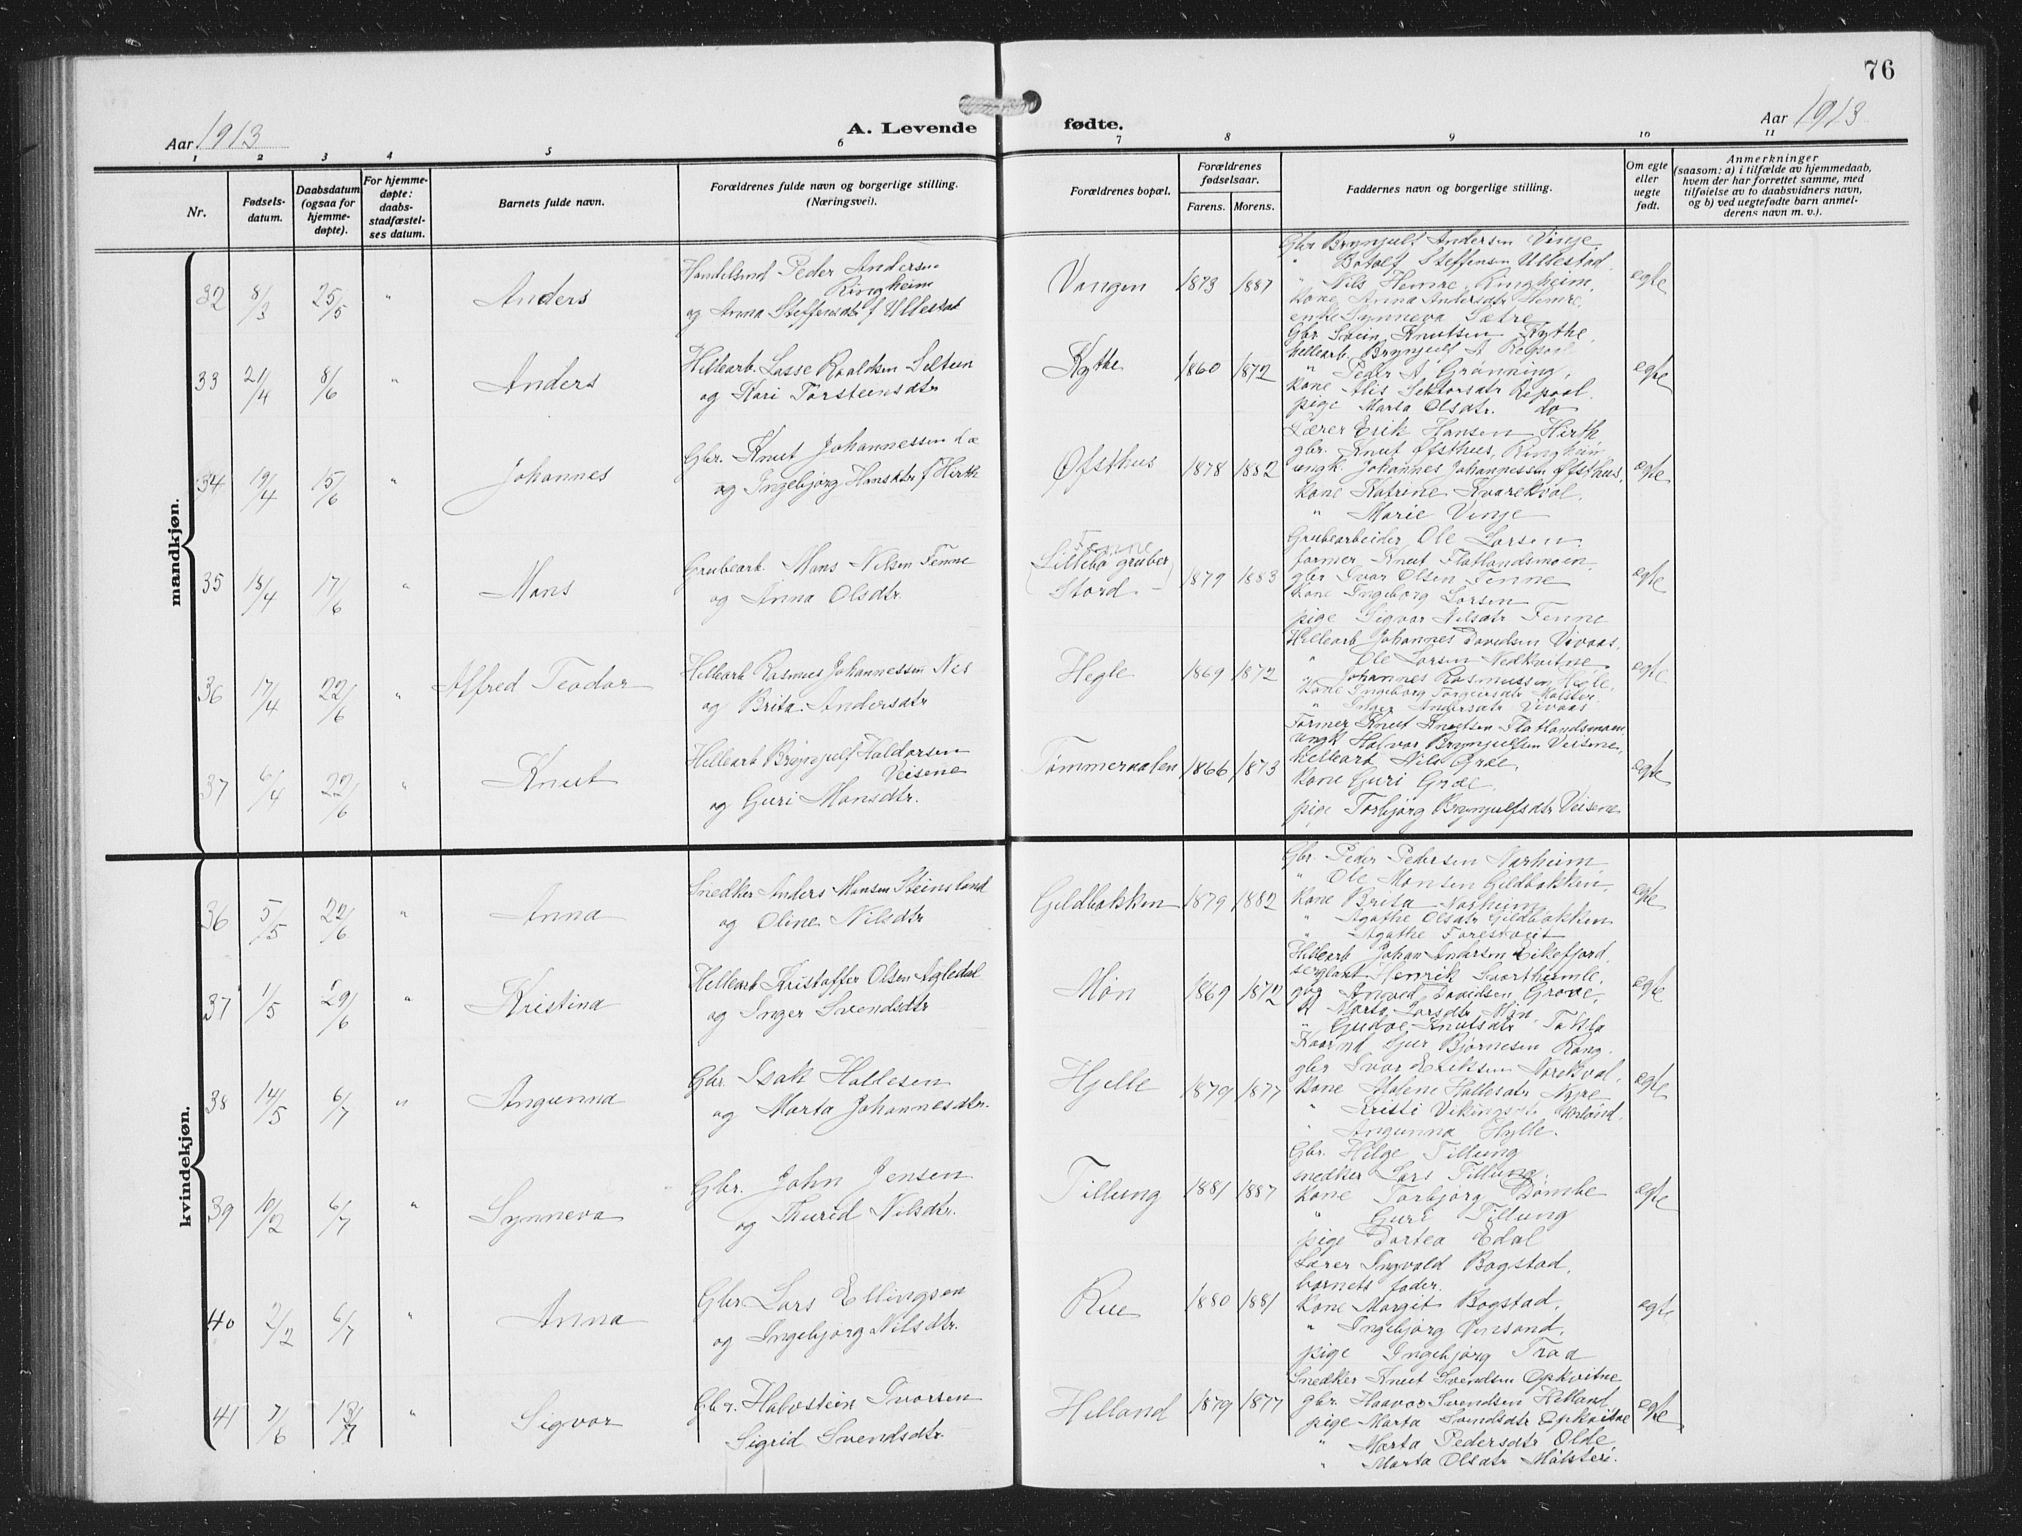 76
Aar 1913
A. Levende fødte.
Aar 1913
1 2 3 4 5 6 7 8 9 10 11
Nr.
Fødsels-
datum.
Daabsdatum
(ogsaa for
hjemme-
døpte).
For hjemme-
døpte:
daabs-
stadfæstel-
ses datum.
Barnets fulde navn.
Forældrenes fulde navn og borgerlige stilling.
(Næringsvei).
Forældrenes bopæl.
Forældrenes
fødselsaar.
Farens. Morens.
Faddernes navn og borgerlige stilling.
Om egte
eller
uegte
født.
Anmerkninger
(saasom: a) i tilfælde av hjemmedaab,
hvem der har forrettet samme, med
tilføielse av to daabsvidners navn,
og b) ved uegtefødte barn anmel-
derens navn m. v.).
mandkjøn.
32 8/3 25/5 " Anders
Handelsmd Peder Andersen
Ringheim
og Anna Steffensdtr f Ullestad
Vangen 1873 1887
Gbr Brynjulf Andersen Vinje
" Botolf Steffensen Ullestad
" Nils Hemre, Ringheim,
Kone Anna Andersdtr Hemre
enke Synneva Sætre
egte
33 21/4 8/6 " Anders
Hellearb. Lasse Roaldsen Selteun
og Kari Torsteinsdtr
Kythe 1860 1872
Gbr Svein Knutsen Kythe
hellearb. Brynjulf A
" Peder A. Grønning,
Kone
pige Marta Olsdtr. do
egte
34 19/4 15/6 " Johannes
Gbr. Knut Johannessen
og Ingebjørg Hansdtr f Hirth
Øfsthus 1878 1882
Lærer Erik Hansen Hirth
gbr. Knut Øfsthus, Ringheim
ungk. Johannes Johannessen Øfsthus,
Kone Katrine Kvarekval,
" Marie Vinje
egte
35 18/4 17/6 " Mons
Grubearb. Mons Nilsen Tenne
og Anna Olsdtr.
Tenne
(Litlebø gruber)
Stord
1879 1883
Grubearbeider Ole Larsen
former Knut Flatlandsmoen,
gbr Ivar Olsen Tenne
Kone Ingeborg Larsen
pige Sigvor Nilsdtr Tenne
egte
36 17/4 22/6 " Alfred Teodor
Hellearb Rasmus Johannessen Nes
og Brita Andersdtr
Hegle 1869 1872
Hellearb Johannes Davidsen Vivaas,
" Ole Larsen Nedkvitne
" Johannes Rasmussen Hegle,
Kone Ingeborg Torgersdtr Mølster
" Inger Andersdtr Vivaas
egte
37 6/4 22/6 " Knut
Hellearb Brynjulf Haldorsen
Veisene
og Guri Monsdtr.
Tømmeraalen 1866 1873
Former Knut Knutsen Flatlandsmoen
ungk Halvor Brynjulfsen Veisene,
hellearb Nils Græe,
Kone Guri Græe,
pige Torbjørg Brynjulfsdtr Veisene
egte
kvindekjøn.
36 5/5 22/6 " Anna
Snedker Anders Monsen Steinsland
og Oline Nilsdtr
Gildbakken 1879 1882
Gbr. Peder Pedersen Narheim
" Ole Monsen Gildbakken
Kone Brita Narheim
" Agathe Olsdtr Gildbakken
" Agathe Forestveit
egte
37 1/5 29/6 " Kristina
Hellearb Kristoffer Olsen Agledal
og Inger Svendsdtr
Møn 1869 1872
Hellearb Johan Andersen Eikefjord,
sergiant Henrik Svortheimle,
Davidsen Grove,
Marta Larsdtr Møn
" Gudve Knutsdtr
egte
38 14/5 6/7 " Angunna
Gbr. Isak Hallesen
og Marta Johannesdtr.
Hjelle 1879 1877
Bjørnesen Rong
gbr Ivar Eriksen
Kone Malene Hallesdtr Nyre
" Kristi
" Angunna Hylle.
egte
39 10/2 6/7 " Synneva
Gbr. John Jensen
og Thurid Nilsdtr.
Tillung 1881 1887
Gbr. Hilge Tillung
snedker Lars Tillung
Kone Torbjørg Dømbe
" Guri Tillung
pige Dortea Edal
egte
40 2/2 6/7 " Anna
Gbr Lars Ellingsen
og Ingebjørg Nilsdtr.
Rue 1880 1881
Lærer Ingvald Bogstad,
barnets fader.
Kone Margit Bogstad,
" Ingebjørg Vinsand,
pige Ingebjørg Traa
egte
41 7/6 13/7 " Sigvor
Gbr. Halvstein Ivarsen
Sigrid Svendsdtr.
Helland 1879 1877
Snedker Knut Svendsen Opkvitne
gbr. Haavar Svendsen Helland
pige Marta Svendsdtr Opkvitne
" Marta Pedersdtr Olde
" Marta Olsdtr Mølster.
egte